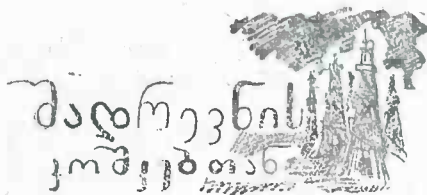 შადრევნის
კოშკებთან